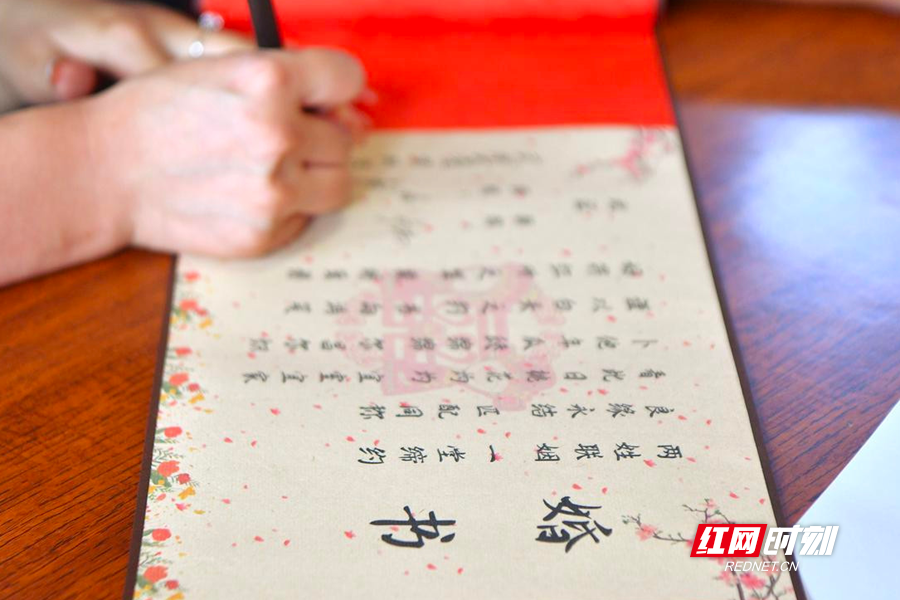 婚书
两姓联姻 一堂缔约
良缘永结 匹配同称
看此日桃花灼灼 宜室宜家
卜他年瓜瓞绵绵 尔昌尔炽
谨以白头之约 书向鸿笺
好将红叶之盟 载明鸳谱
此证
红网时刻
REDNET.CN